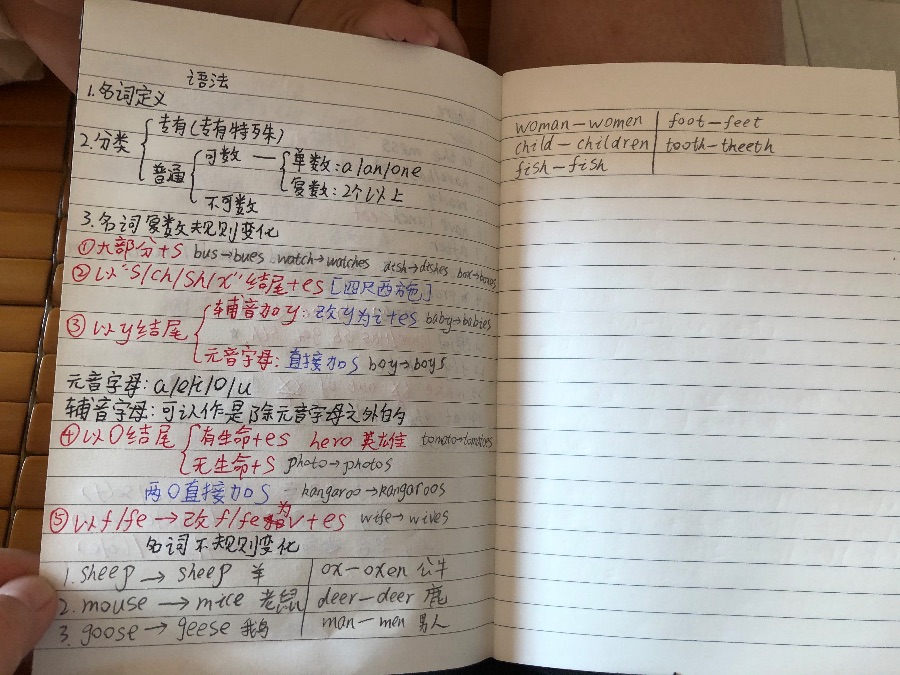 语法
1.名词定义
2.分类
专有(专有特殊)
普通
可数 — 单数:a/an/one
复数:2个以上
不可数
3.名词复数规则变化
①大部分+s bus→bues watch→watches dish→dishes box→boxes
②以"s/ch/sh/x"结尾+es [四尺西方色]
③以y结尾
辅音加y:改y为i+es baby→babies
元音字母:直接加s boy→boys
元音字母:a/e/i/o/u
辅音字母:可认作是除元音字母之外的
④以O结尾
有生命+es hero 英雄 tomato→tomatoes
无生命+s photo→photos
两O直接加s — kangaroo→kangaroos
⑤以f/fe→改f/fe为v+es wife→wives
名词不规则变化
1.sheep → sheep 羊 ox—oxen 公牛
2.mouse → mice 老鼠 deer—deer 鹿
3.goose → geese 鹅 man—men 男人
woman—women foot—feet
child—children tooth—theeth
fish—fish